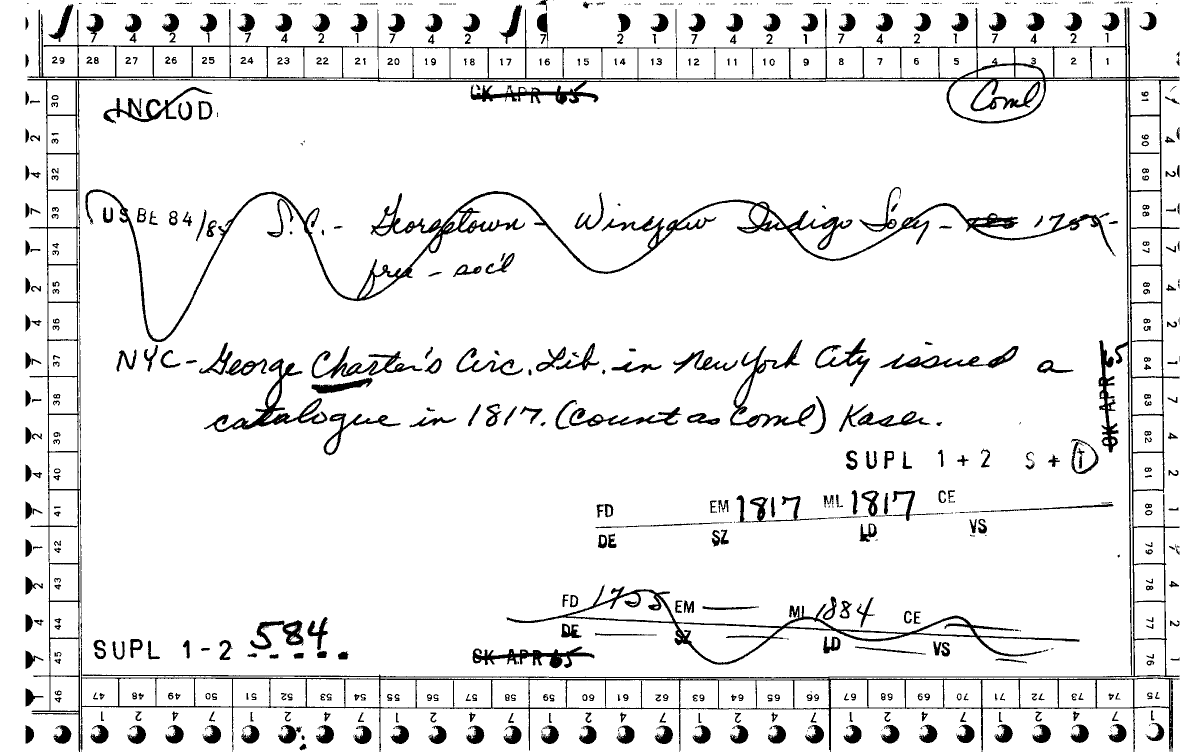 7 4 2 1 7 4 2 1 7 4 2 1 7 2 1 7 4 2 1 7 4 2 1 7 4 2 1
29 28 27 26 25 24 23 22 21 20 19 18 17 16 15 14 13 12 11 10 9 8 7 6 5 4 3 2 1
INCLUD. OK APR 65 Coml
USBE 84/85 S.C. - Georgetown - Winyaw Indigo Socy - 1755 -
free - soc'l
NYC - George Charter's Circ. Lib. in New York City issued a
catalogue in 1817. (count as Coml) Kaser.
OK APR 65
SUPL 1+2 S+1
FD EM 1817 ML 1817 CE
DE SZ LD VS
FD 1755 EM — ML 1884 CE
DE — SZ — LD — VS
SUPL 1-2 584
OK APR 65
30 31 32 33 34 35 36 37 38 39 40 41 42 43 44 45 46
91 90 89 88 87 86 85 84 83 82 81 80 79 78 77 76
47 48 49 50 51 52 53 54 55 56 57 58 59 60 61 62 63 64 65 66 67 68 69 70 71 72 73 74 75
1 2 4 7 1 2 4 7 1 2 4 7 1 2 4 7 1 2 4 7 1 2 4 7 1 2 4 7